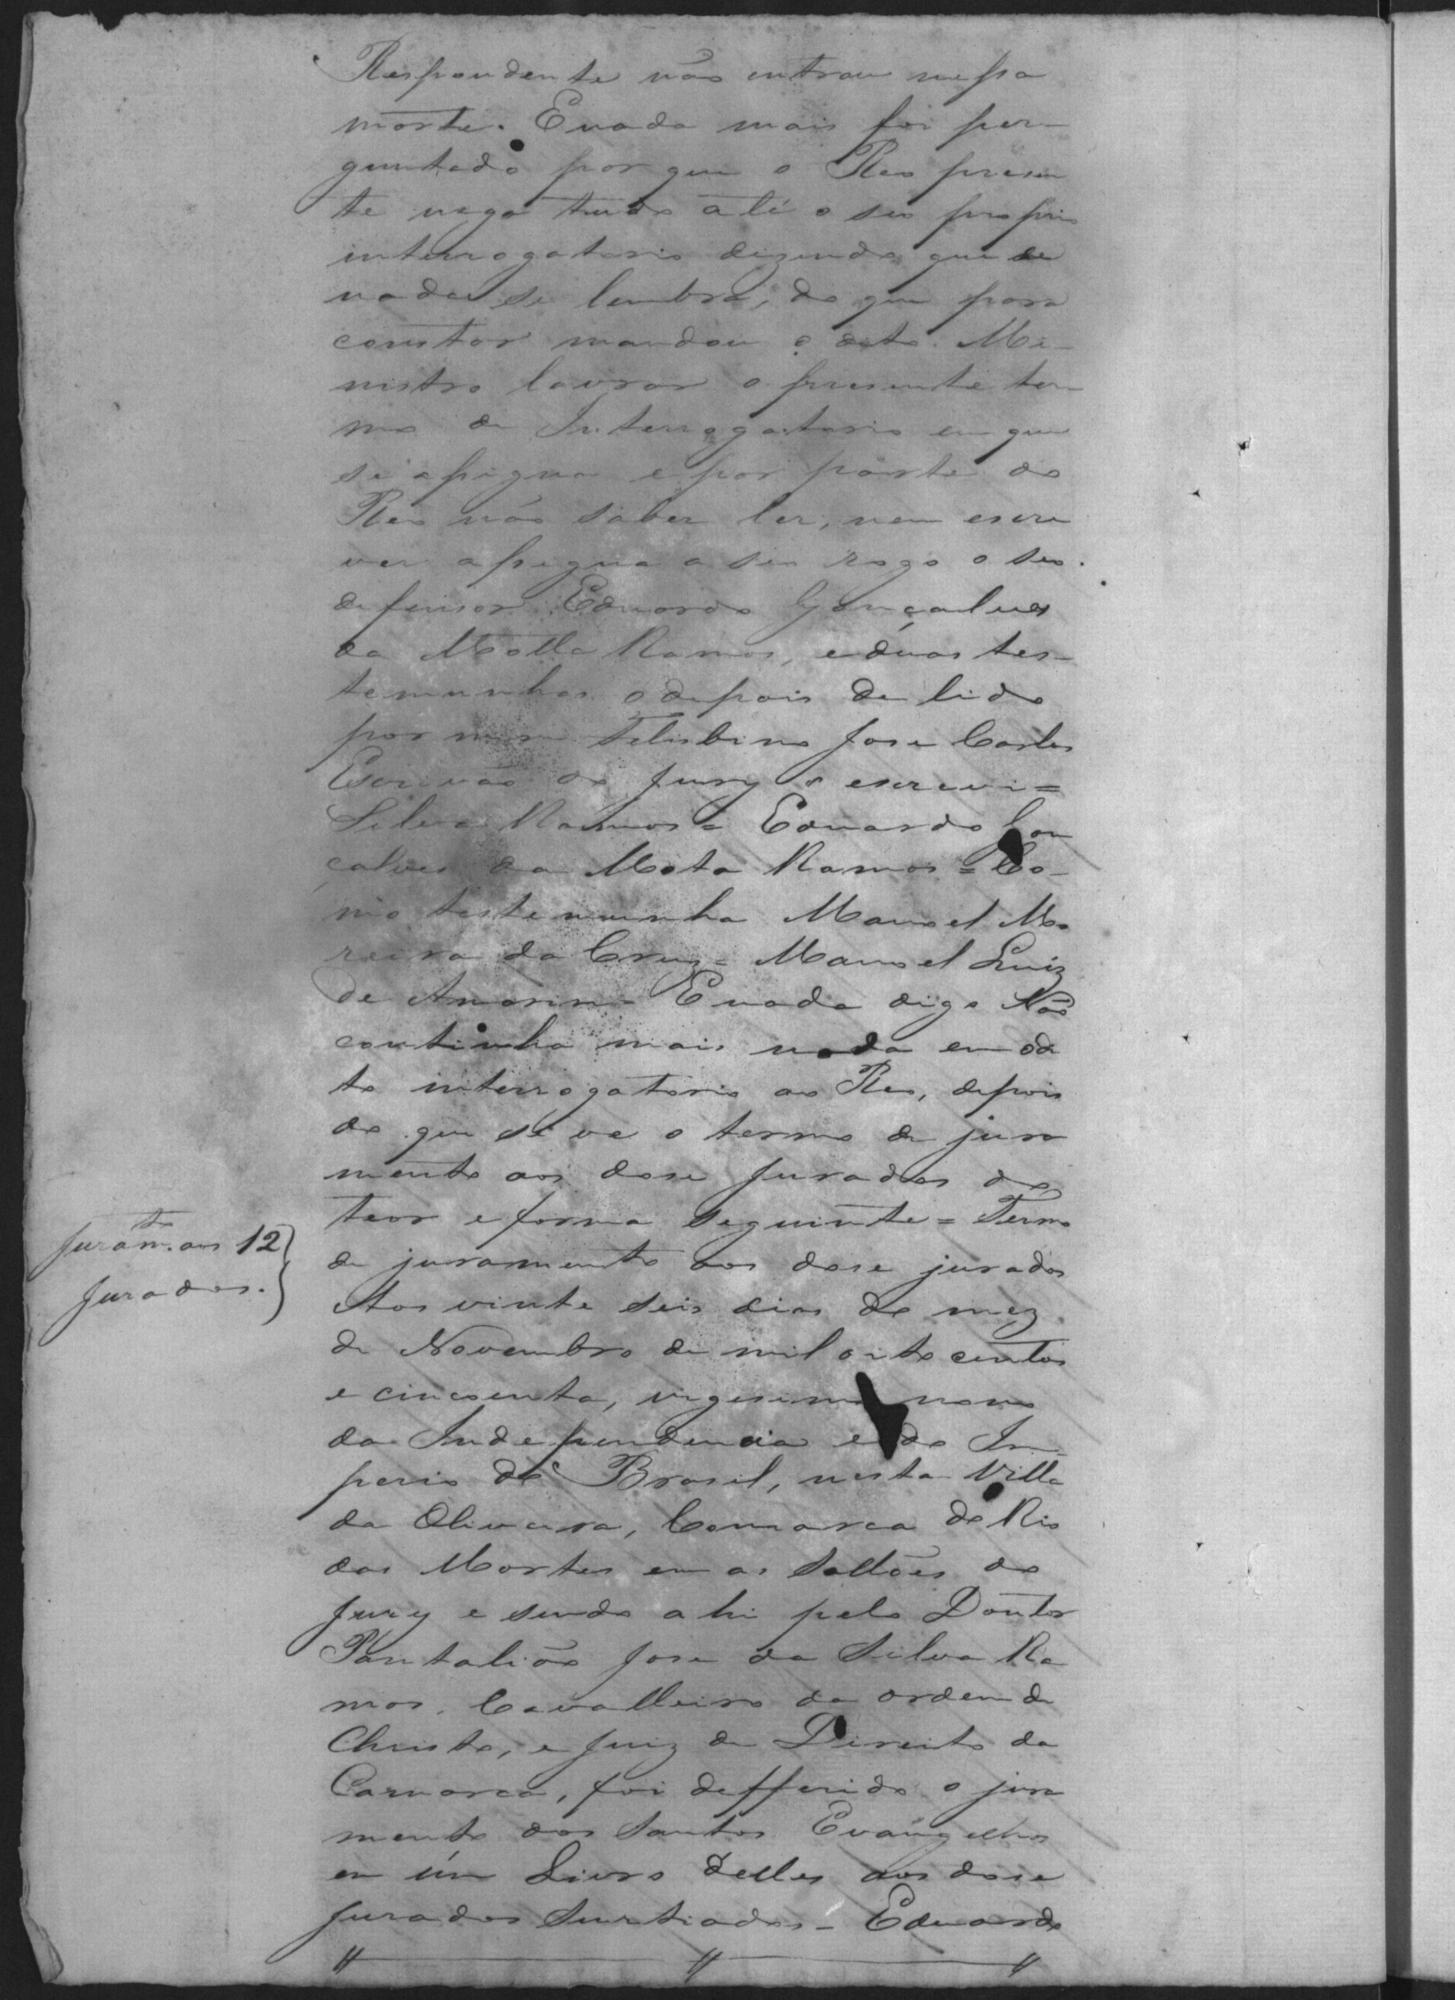 Respondente não entrou nessa
morte. E nada mais foi per-
guntado por que o Reo presen
te nega tudo até o seo proprio
interrogatorio dizendo que de
nada se lembra, do que para
constar mandou o dito Me-
nistro lavrar o presente ter
mo de Interrogatorio em que
se assigna e por parte do
Reo não saber ler, nem escre
ver assigna a seo rogo o seo
defensor Eduardo Gonçalves
da Motta Ramos, e duas tes-
temunhas o depois de lido
por mim Felisbino Jose Carlos
Escrivão do Jury o escrevi =
Silva Ramos = Eduardo Gon
çalves da Mota Ramos = Co-
mo testemunha Manoel Mo
reira da Cruz = Manoel Luiz
de Amorim - E nada digo Não
continha mais nada em o di
to interrogatorio ao Reo, depois
do que se ve o termo de jura
mento aos dose Jurados do
teor e forma seguinte = Termo
de juramento aos dose jurados
Aos vinte seis dias do mez
de Novembro de mil oito centos
e cincoenta, vigesimo nono
da Independencia e do Im-
perio do Brasil, nesta Villa
da Oliveira, Comarca do Rio
das Mortes em as Sallões do
Jury e sendo ahi pelo Doutor
Pantalião Jose da Silva Ra
mos, Cavalleiro da ordem de
Christo, e Juiz de Direito da
Camarca, foi defferido o jura
mento dos Santos Evangelhos
em úm Livro delles aos dose
Jurados Surtiados - Eduardo
Juramto. aos 12
Jurados.